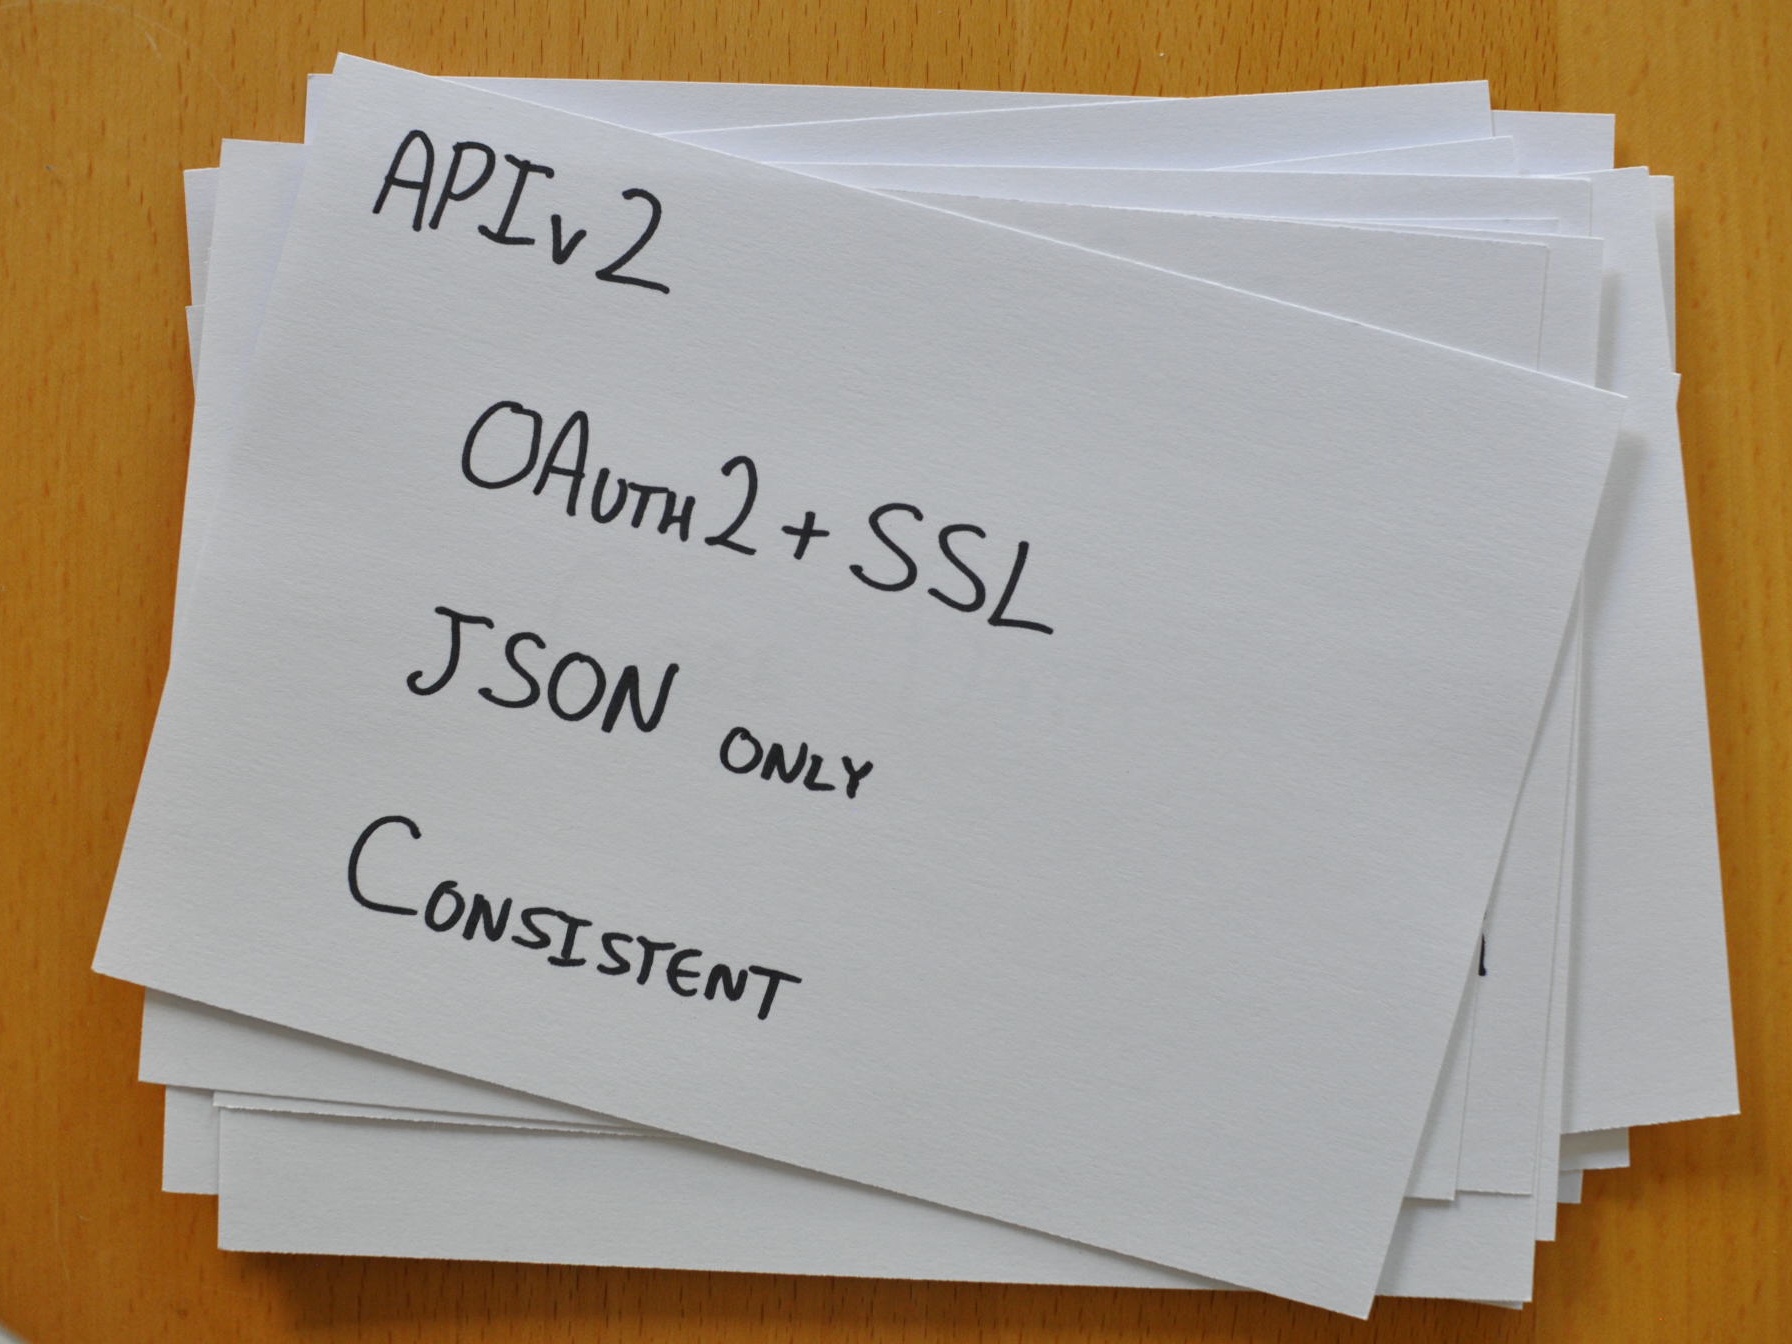 APIv2
OAuth2 + SSL
JSON only
Consistent